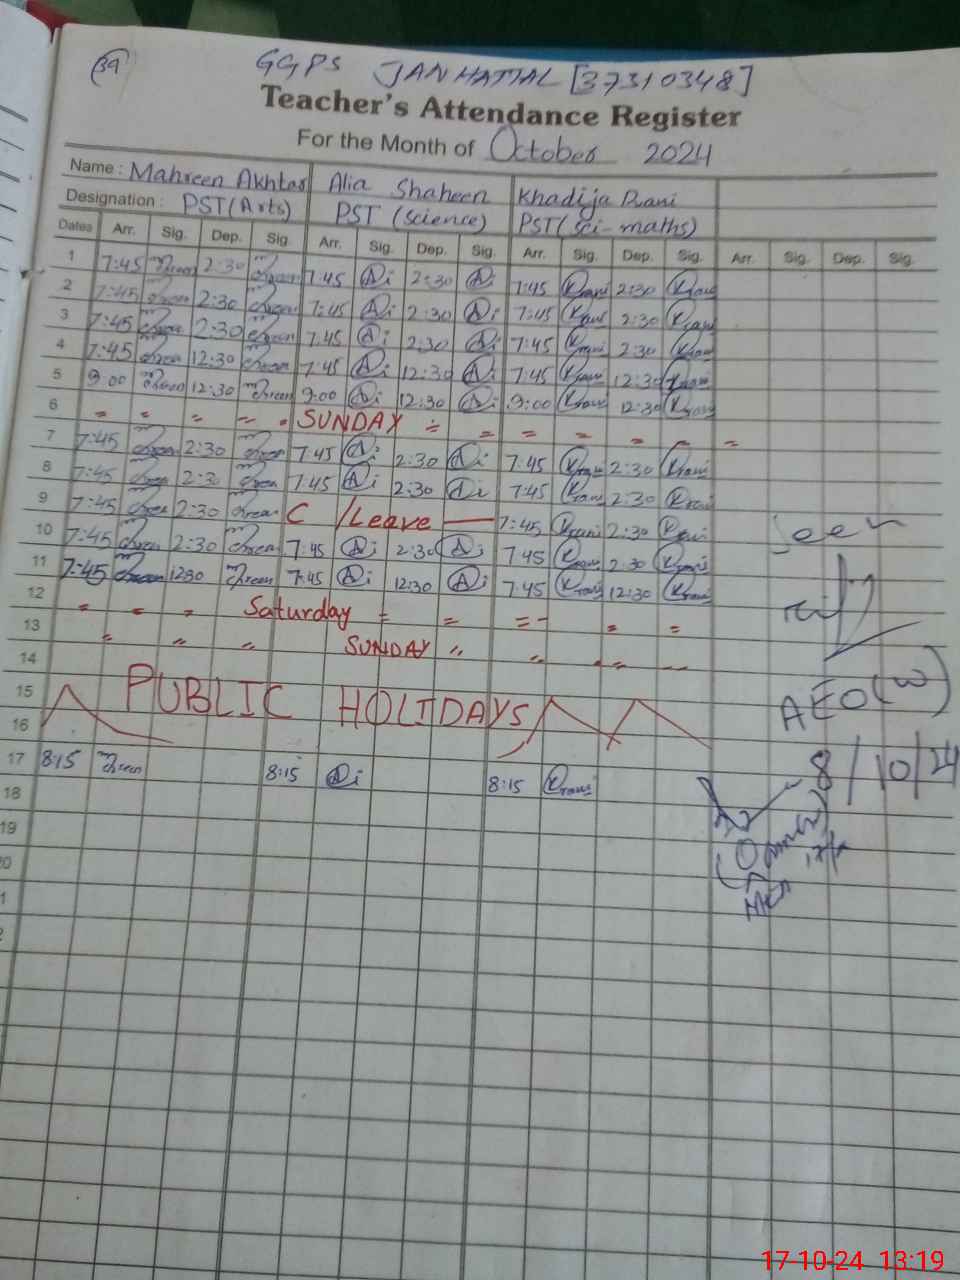 39
GGPS JANHATTAL [37310348]
Teacher's Attendance Register
For the Month of October 2024
Name : Mahreen Akhtar Alia Shaheen Khadija Rani
Designation : PST (Arts) PST (science) PST (sci-maths)
Dates Arr. Sig. Dep. Sig. Arr. Sig. Dep. Sig. Arr. Sig. Dep. Sig. Arr. Sig. Dep. Sig.
1 7:45 2:30 7:45 Ai 2:30 Ai 7:45 Krani 2:30 Krani
2 7:45 2:30 7:45 Ai 2:30 Ai 7:45 Krani 2:30 Krani
3 7:45 2:30 7:45 Ai 2:30 Ai 7:45 Krani 2:30 Krani
4 7:45 12:30 7:45 Ai 12:30 Ai 7:45 Krani 12:30 Krani
5 9:00 12:30 9:00 Ai 12:30 Ai 9:00 Krani 12:30 Krani
6 " " " " SUNDAY = = = = = = =
7 7:45 2:30 7:45 Ai 2:30 Ai 7:45 Krani 2:30 Krani
8 7:45 2:30 7:45 Ai 2:30 Ai 7:45 Krani 2:30 Krani
9 7:45 2:30 C /Leave — 7:45 Krani 2:30 Krani
10 7:45 2:30 7:45 Ai 2:30 Ai 7:45 Krani 2:30 Krani
11 7:45 1230 7:45 Ai 12:30 Ai 7:45 Krani 12:30 Krani
12 " " " Saturday = = = = =
13 " " " SUNDAY " " " —
14
15 PUBLIC HOLIDAYS
16
17 8:15 8:15 Ai 8:15 Krani
18
19
20
1
2
Seen
AEO(W)
8/10/24
17-10-24 13:19